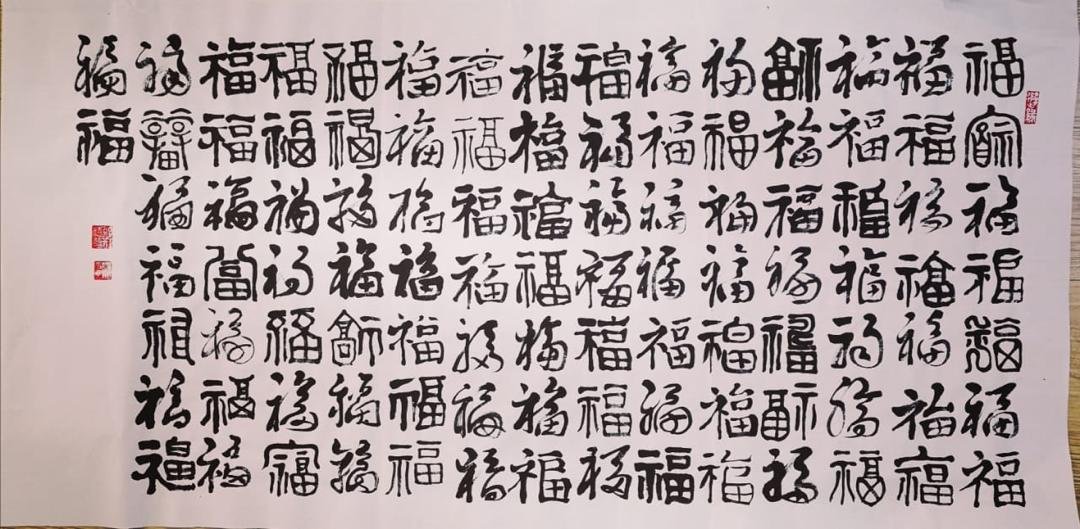 福福福福福福福
福福福福福福福
福福福福福福福
福福福福福福福
福福福福福福福
福福福福福福福
福福福福福福福
福福福福福福福
福福福福福福福
福福福福福福福
福福福福福福福
福福福福福福福
福福福福福福福
福福福福福福福
福福